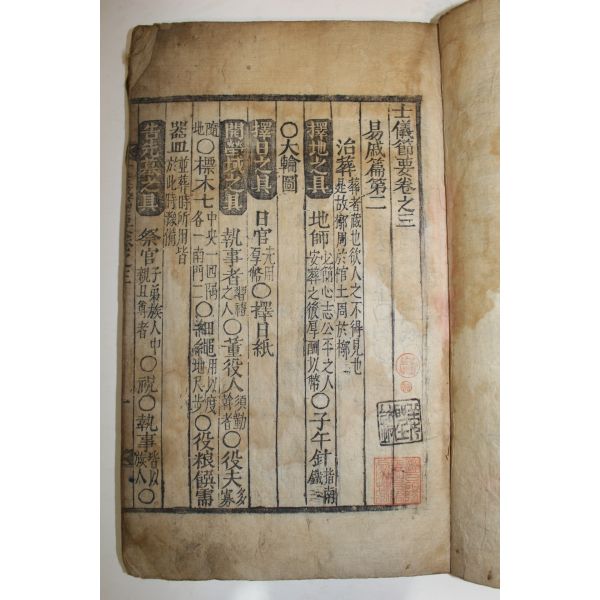 士儀節要卷之三
易戚篇第二
治葬 葬者藏也欲人之不得見也是故槨周於棺土周於槨
擇地之具 地師 必簡心志公平之人安葬之後厚酬以幣 〇子午針 指南鐵
〇大輪圖
擇日之具 日官 先用厚幣 〇擇日紙
開塋域之具 執事者 習禮之人 〇董役人 須勤幹者 〇役夫 多寡
隨地 〇標木七 中央一四隅各一南門二 〇細繩 用以度地尺步 〇役粮饌需
器皿 並葬時所用皆於此時潑備
告先塋之具 祭官 子弟族人中親且尊者 〇祝〇執事 皆以族人 〇